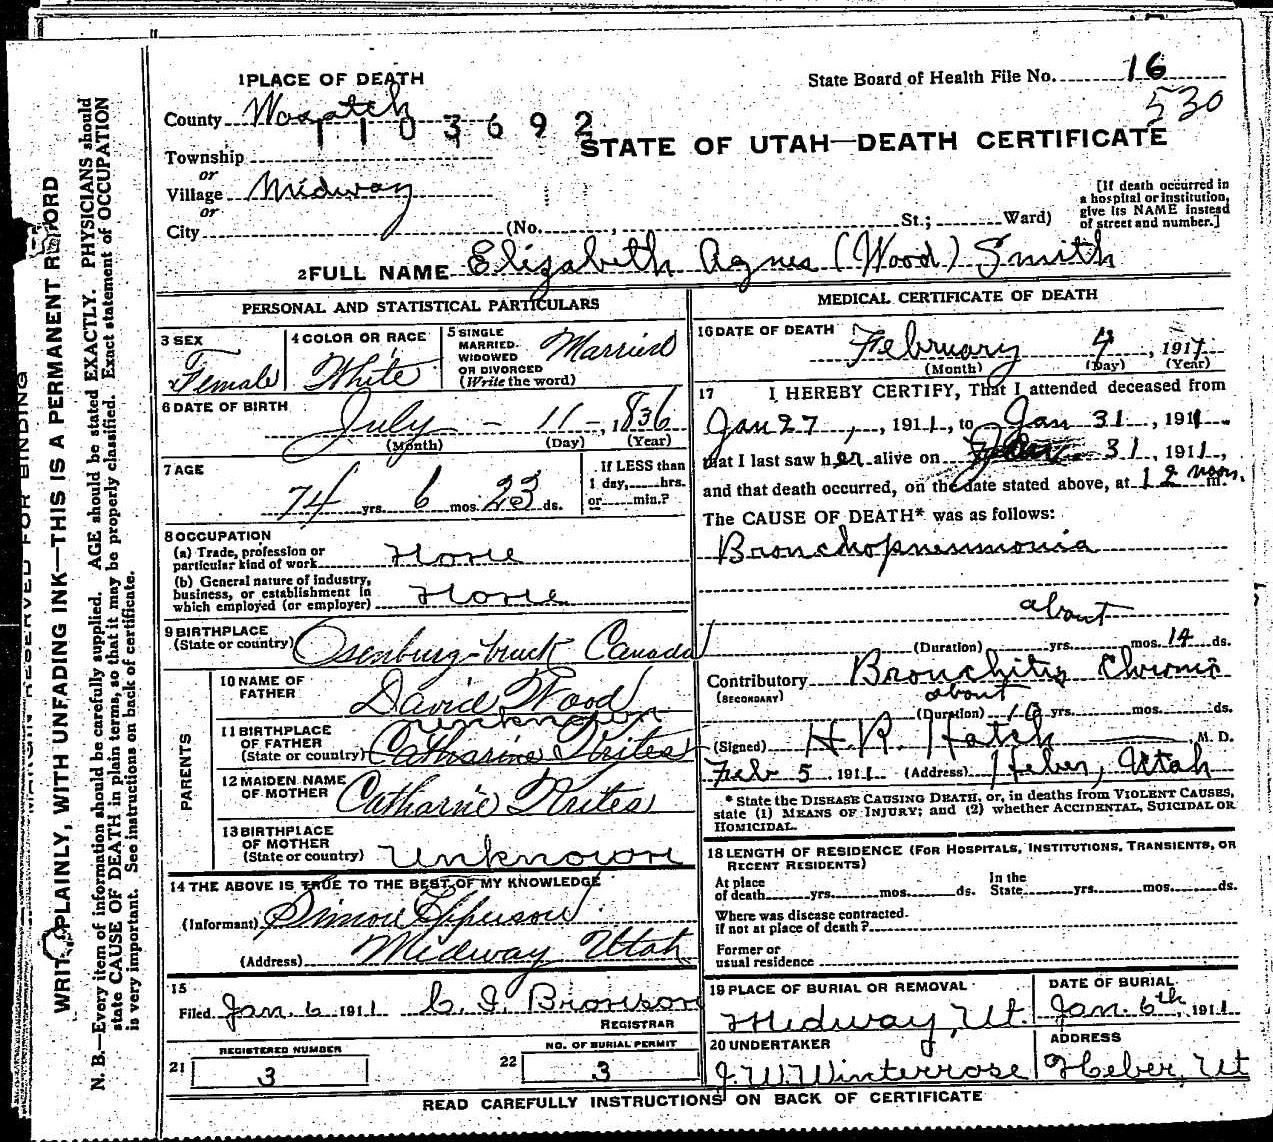 1 PLACE OF DEATH
State Board of Health File No. 16
530
County Wasatch
1103692
STATE OF UTAH—DEATH CERTIFICATE
Township
or
Village Midway
or
City (No. , St.; Ward)
[If death occurred in
a hospital or institution,
give its NAME instead
of street and number.]
2 FULL NAME Elizabeth Agnes (Wood) Smith
PERSONAL AND STATISTICAL PARTICULARS
3 SEX
Female
4 COLOR OR RACE
White
5 SINGLE
MARRIED.
WIDOWED
OR DIVORCED
(Write the word)
Married
6 DATE OF BIRTH
July - 11 - , 1836
(Month) (Day) (Year)
7 AGE
74 yrs. 6 mos. 23 ds.
If LESS than
1 day, hrs.
or min.?
8 OCCUPATION
(a) Trade, profession or
particular kind of work None
(b) General nature of industry,
business, or establishment in
which employed (or employer) None
9 BIRTHPLACE
(State or country) Canada
PARENTS
10 NAME OF
FATHER
David Wood
11 BIRTHPLACE
OF FATHER
(State or country)
unknown
Catharine
12 MAIDEN NAME
OF MOTHER
Catharine
13 BIRTHPLACE
OF MOTHER
(State or country) unknown
14 THE ABOVE IS TRUE TO THE BEST OF MY KNOWLEDGE
(Informant) Simon Epperson
(Address) Midway Utah
15
Filed Jan. 6 1911 C. I. Bronson
REGISTRAR
REGISTERED NUMBER
21 3
NO. OF BURIAL PERMIT
22 3
MEDICAL CERTIFICATE OF DEATH
16 DATE OF DEATH
February 4, 1911
(Month) (Day) (Year)
17 I HEREBY CERTIFY, That I attended deceased from
Jan 27, 1911, to Jan 31, 1911.
that I last saw her alive on Jan. 31, 1911,
and that death occurred, on the date stated above, at 12 noon m.
The CAUSE OF DEATH* was as follows:
Bronchopneumonia
about
(Duration) yrs. mos. 14 ds.
Contributory Bronchitis Chronic
(SECONDARY)
about
(Duration) 10 yrs. mos. ds.
(Signed) H. R. Hatch M. D.
Feb 5, 1911 (Address) Heber, Utah
* State the DISEASE CAUSING DEATH, or, in deaths from VIOLENT CAUSES,
state (1) MEANS OF INJURY; and (2) whether ACCIDENTAL, SUICIDAL OR
HOMICIDAL.
18 LENGTH OF RESIDENCE (FOR HOSPITALS, INSTITUTIONS, TRANSIENTS, OR
RECENT RESIDENTS)
At place
of death yrs. mos. ds.
In the
State yrs. mos. ds.
Where was disease contracted.
If not at place of death?
Former or
usual residence
19 PLACE OF BURIAL OR REMOVAL
Midway, Ut.
DATE OF BURIAL
Jan. 6th, 1911
20 UNDERTAKER
J. W. Winterrose
ADDRESS
Heber, Ut
READ CAREFULLY INSTRUCTIONS ON BACK OF CERTIFICATE
MARGIN RESERVED FOR BINDING
WRITE PLAINLY, WITH UNFADING INK—THIS IS A PERMANENT RECORD
N. B.—Every item of information should be carefully supplied. AGE should be stated EXACTLY. PHYSICIANS should
state CAUSE OF DEATH in plain terms, so that it may be properly classified. Exact statement of OCCUPATION
is very important. See instructions on back of certificate.